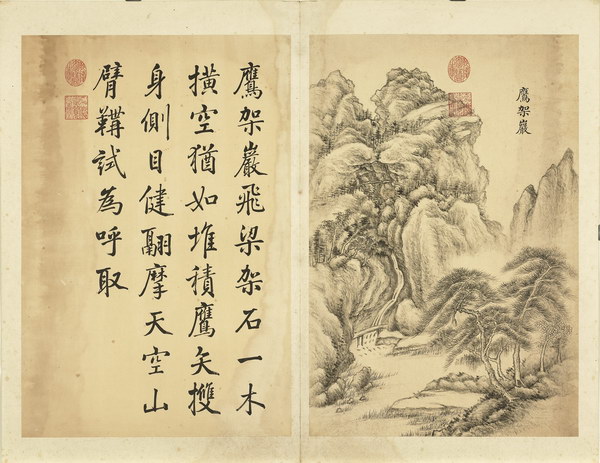 鷹架巖
鷹架巖飛梁架石一木
橫空猶如堆積鷹矢㩳
身側目健翮摩天空山
臂鞲試為呼取